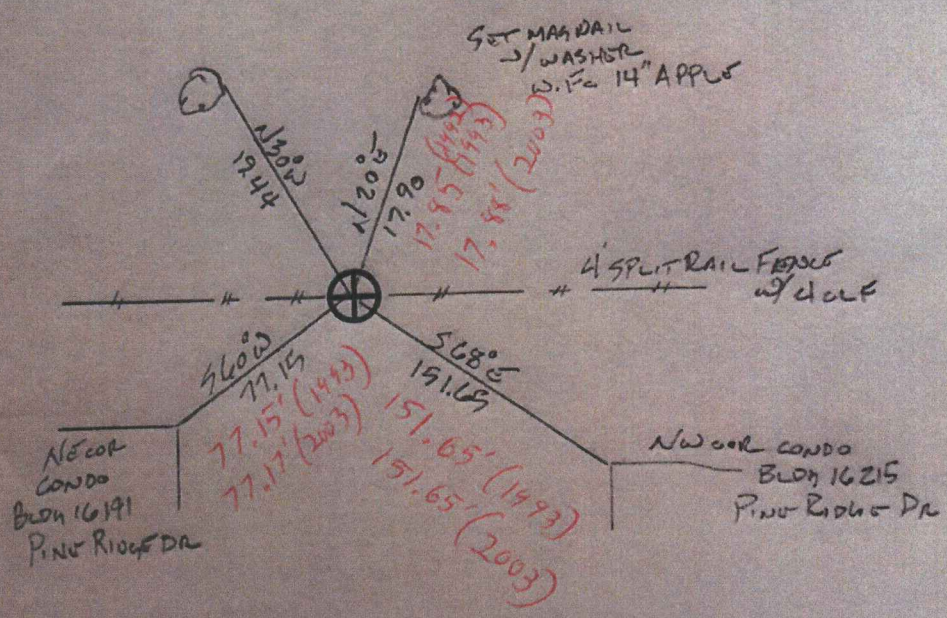 SET MAG NAIL
W/ WASHER
W. Fc 14" APPLE
N30°W
19.44
N20°E
17.90
17.85' (1993)
17.88' (2003)
4' SPLIT RAIL FENCE
W/ 4' CLF
S60°W
77.15
77.15' (1993)
77.17' (2003)
S68°E
151.65
151.65' (1993)
151.65' (2003)
NE COR
CONDO
BLDG 16191
PINE RIDGE DR
NW COR CONDO
BLDG 16215
PINE RIDGE DR